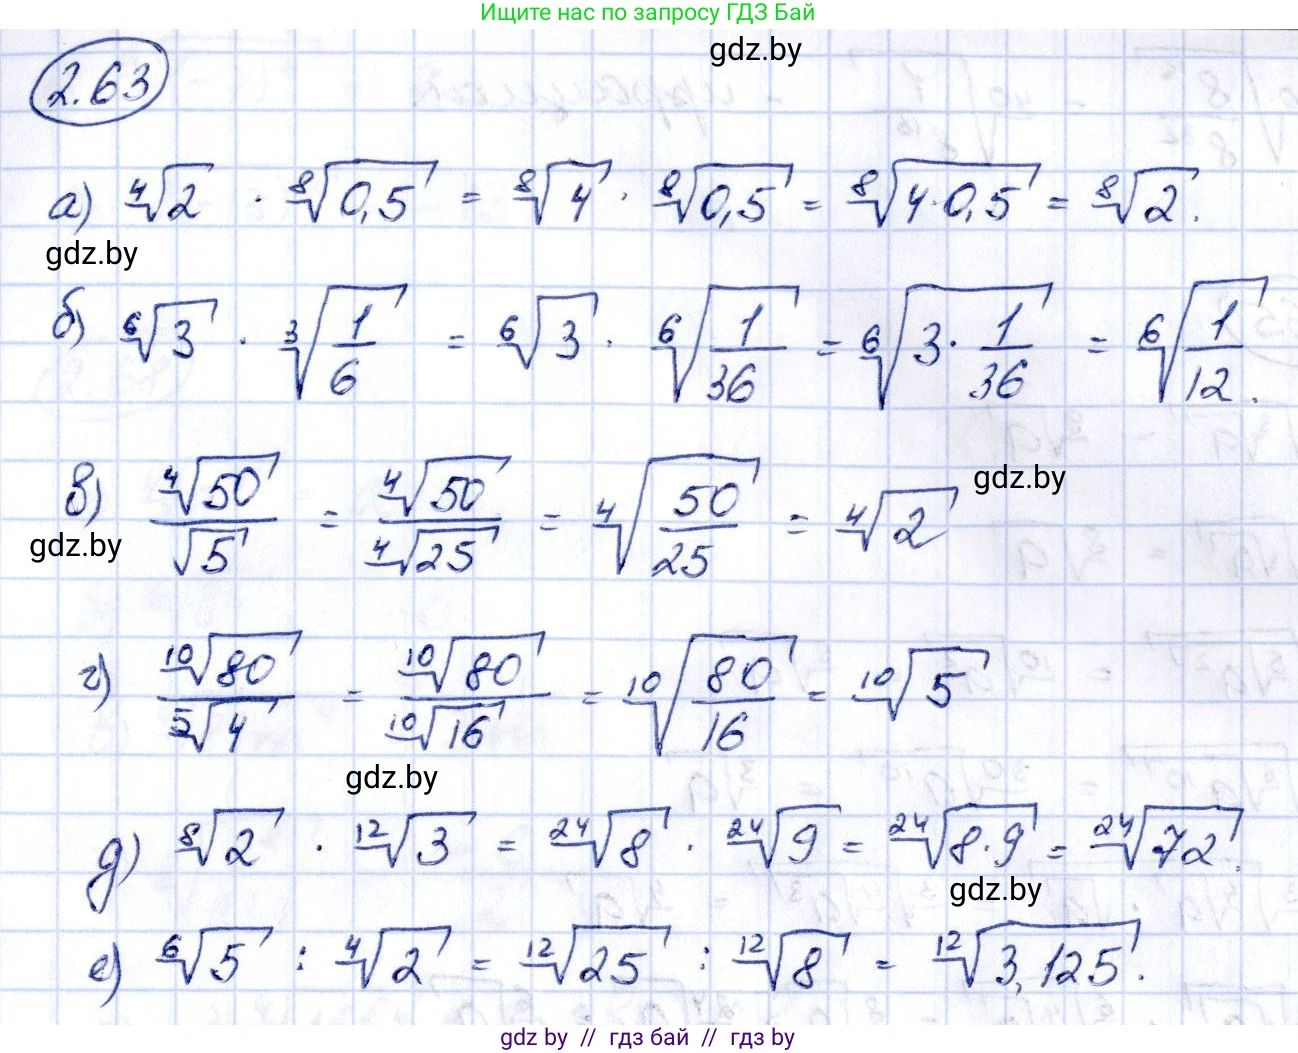 Ищите нас по запросу ГДЗ Бай
gdz.by
2.63
а) ⁴√2 · ⁸√0,5 = ⁸√4 · ⁸√0,5 = ⁸√(4·0,5) = ⁸√2.
gdz.by
б) ⁶√3 · ³√(1/6) = ⁶√3 · ⁶√(1/36) = ⁶√(3·1/36) = ⁶√(1/12).
gdz.by
в) ⁴√50/√5 = ⁴√50/⁴√25 = ⁴√(50/25) = ⁴√2
gdz.by
г) ¹⁰√80/⁵√4 = ¹⁰√80/¹⁰√16 = ¹⁰√(80/16) = ¹⁰√5
gdz.by
д) ⁸√2 · ¹²√3 = ²⁴√8 · ²⁴√9 = ²⁴√(8·9) = ²⁴√72.
gdz.by
е) ⁶√5 : ⁴√2 = ¹²√25 : ¹²√8 = ¹²√3,125.
gdz by // гдз бай // гдз by